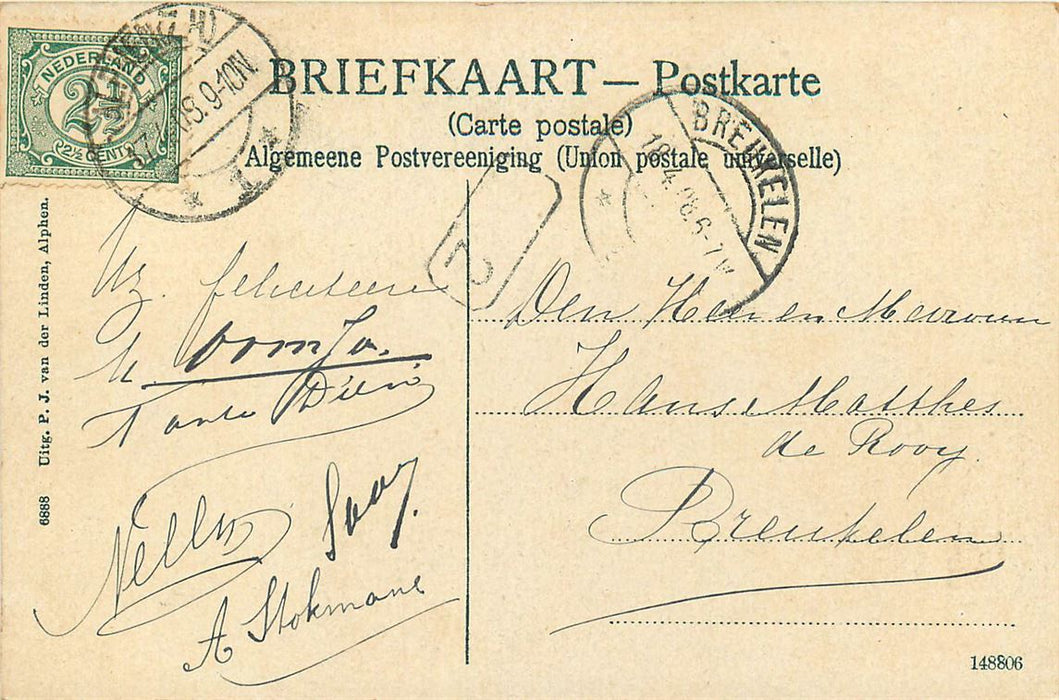 NEDERLAND
2½
2½ CENT
17. 08. 9-10N
BRIEFKAART — Postkarte
(Carte postale)
Algemeene Postvereeniging (Union postale universelle)
BREUKELEN
18. 4. 08. 6-7V
2
Uitg. P. J. van der Linden, Alphen.
6888
Wz. feliciteeren
U oom Jo.
Tante Dien
Nelly Saar.
A Stokmans
Den Heer en Mevrouw
Hans Matthes
de Rooy.
Breukelen
148806